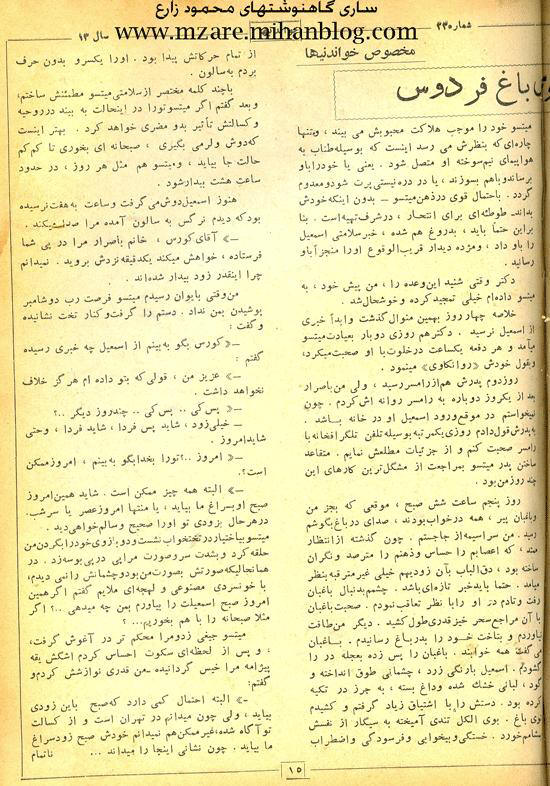 ساری گاهنوشتهای محمود زارع
www.mzare.mihanblog.com
شماره ۲۳۰
سال ۱۳
مخصوص خواندنیها
باغ فردوس
میتسو خود را موجب هلاکت محبوبش می بیند ، وتنها
چاره‌ای که بنظرش می رسد اینست که بوسیله طناب به
هواپیمای نیم‌سوخته او متصل شود . یعنی یا خودرا باو
برساند و باهم بسوزند ، یا در دره نیستی پرت شود و معدوم
گردد . باحتمال قوی درذهن میتسو ـ بدون اینکه خودش
بداند ـ طوطئه‌ای برای انتحار ، درشرف تهیه است . بنا
براین حتماً باید ، بدروغ هم شده ، خبر سلامتی اسمعیل
را باو داد ، ومژده دیدار قریب الوقوع اورا منجزاً باو
رسانید .
دکتر وقتی شنید این وعده را ، من پیش خود ، به
میتسو داده‌ام خیلی تمجید کرده و خوشحال شد .
خلاصه چهار روز بهمین منوال گذشت وابداً خبری
از اسمعیل نرسید . دکتر هم روزی دوبار بعیادت میتسو
میآمد و هر دفعه یکساعت درخلوت با او صحبت میکرد،
وبقول خودش «روانکاوی» مینمود .
روز دوم پدرش هم از رامسر رسید ، ولی من باصرار
بعد از یکروز دوباره به رامسر روانه اش کردم . چون
نمیخواستم در موقع ورود اسمعیل او در خانه باشد .
به پدرش قول دادم روزی یکمرتبه بوسیله تلفن تلگرافخانه با
رامسر صحبت کنم و از جزئیات مطلعش نمایم . متقاعد
ساختن پدر میتسو بمراجعت از مشکل‌ترین کارهای این
چند روز من بود .
روز پنجم ساعت شش صبح ، موقعی که بجز من
وباغبان پیر ، همه درخواب بودند ، صدای درباغ بگوشم
رسید . من سراسیمه از جا جستم . چون گذشته از انتظار
ممتد ، که اعصابم را حساس وذهنم را مترصد ونگران
ساخته بود ، دق‌الباب بآن زودی بهم خیلی غیرمترقبه بنظر
میآمد . حتما باید خبر تازه‌ای باشد . چشمم بدنبال باغبان
رفت وتادم در او را با نظر تعاقب نمودم . صحبت باغبان
با آن مراجع سحر خیز قدری طول کشید . دیگر من طاقت
نیاوردم و بتاخت خود را بدر باغ رسانیدم . باغبان
می گفت همه خوابند . باغبان را پس زده بعجله در را
گشودم . اسمعیل با رنگی زرد ، چشمانی طوق انداخته و
گود ، لبانی خشک شده وداغ بسته ، به جرز در تکیه
کرده بود . دستش را با اشتیاق زیاد گرفتم و کشیدم
توی باغ . بوی الکل تندی آمیخته به سیگار از نفسش
بمشامم خورد . خستگی وبیخوابی وفرسودگی واضطراب
از تمام حرکاتش پیدا بود . اورا یکسر و بدون حرف
بردم به سالون .
با چند کلمه مختصر از سلامتی میتسو مطمئنش ساختم،
و بعد گفتم اگر میتسو تورا دراینحالت به بیند در روحیه
وکسالتش تأثیر بدو مضری خواهد کرد . بهتر اینست
که دوش ولرمی بگیری ، صبحانه ای بخوری تا کم کم
حالت جا بیاید ، ومیتسو هم مثل هر روز ، در حدود
ساعت هشت بیدار شود .
هنوز اسمعیل دوش می گرفت وساعت به هفت نرسیده
بود که دیدم نرگس به سالون آمده مرا صدا میکند .
ـ» آقای کورس ، خانم باصرار مرا در پی شما
فرستاده ، خواهش میکند یکدقیقه نزدش بروید . نمیدانم
چرا اینقدر زود بیدار شده‌اند .
من وقتی بایوان رسیدم میتسو فرصت رب دوشامبر
پوشیدن بمن نداد . دستم را گرفت و کنار تخت نشانیده
و گفت :
ـ» کورس بگو به بینم از اسمعیل چه خبری رسیده
گفتم :
ـ» عزیز من ، قولی که بتو داده ام هرگز خلاف
نخواهد داشت .
ـ» پس کی .. پس کی .. چند روز دیگر ..؟
ـ خیلی زود ، شاید پس فردا ، شاید فردا ، وحتی
شاید امروز .
ـ» امروز ..؟ تورا بخدا بگو به بینم ، امروز ممکن
است؟.
ـ» البته همه چیز ممکن است . شاید همین امروز
صبح او بسراغ ما بیاید ، یا منتها امروز عصر یا سرشب .
درهرحال بزودی تو اورا صحیح وسالم خواهی دید .
میتسو بی‌اختیار در تختخواب نشست ودو بازوی خود را بگردن من
حلقه کرد و بشدت سروصورت مرا پی در پی بوسه زد . در
همانحالیکه صورتش بصورت من بود وچشمانش را نمی دیدم،
با خونسردی مصنوعی و لهجه‌ای ملایم گفتم اگر همین
امروز صبح اسمعیلت را بیاورم بمن چه میدهی ..؟ اگر
مثلا صبحانه را با هم بخوریم...؟
میتسو جیغی زد و مرا محکم تر در آغوش گرفت،
و پس از لحظه‌ای سکوت احساس کردم اشگش یقه
پیژامه مرا خیس گردانیده ـ من قدری نوازشش کردم و
گفتم:
ـ» البته احتمال کمی دارد که صبح باین زودی
بیاید ، ولی چون میدانم در تهران است و از کسالت
تو آگاه شده ، غیرممکن هم نمیدانم خودش صبح زود سراغ
ما بیاید . چون نشانی اینجا را میداند ... ناتمام
۱۵